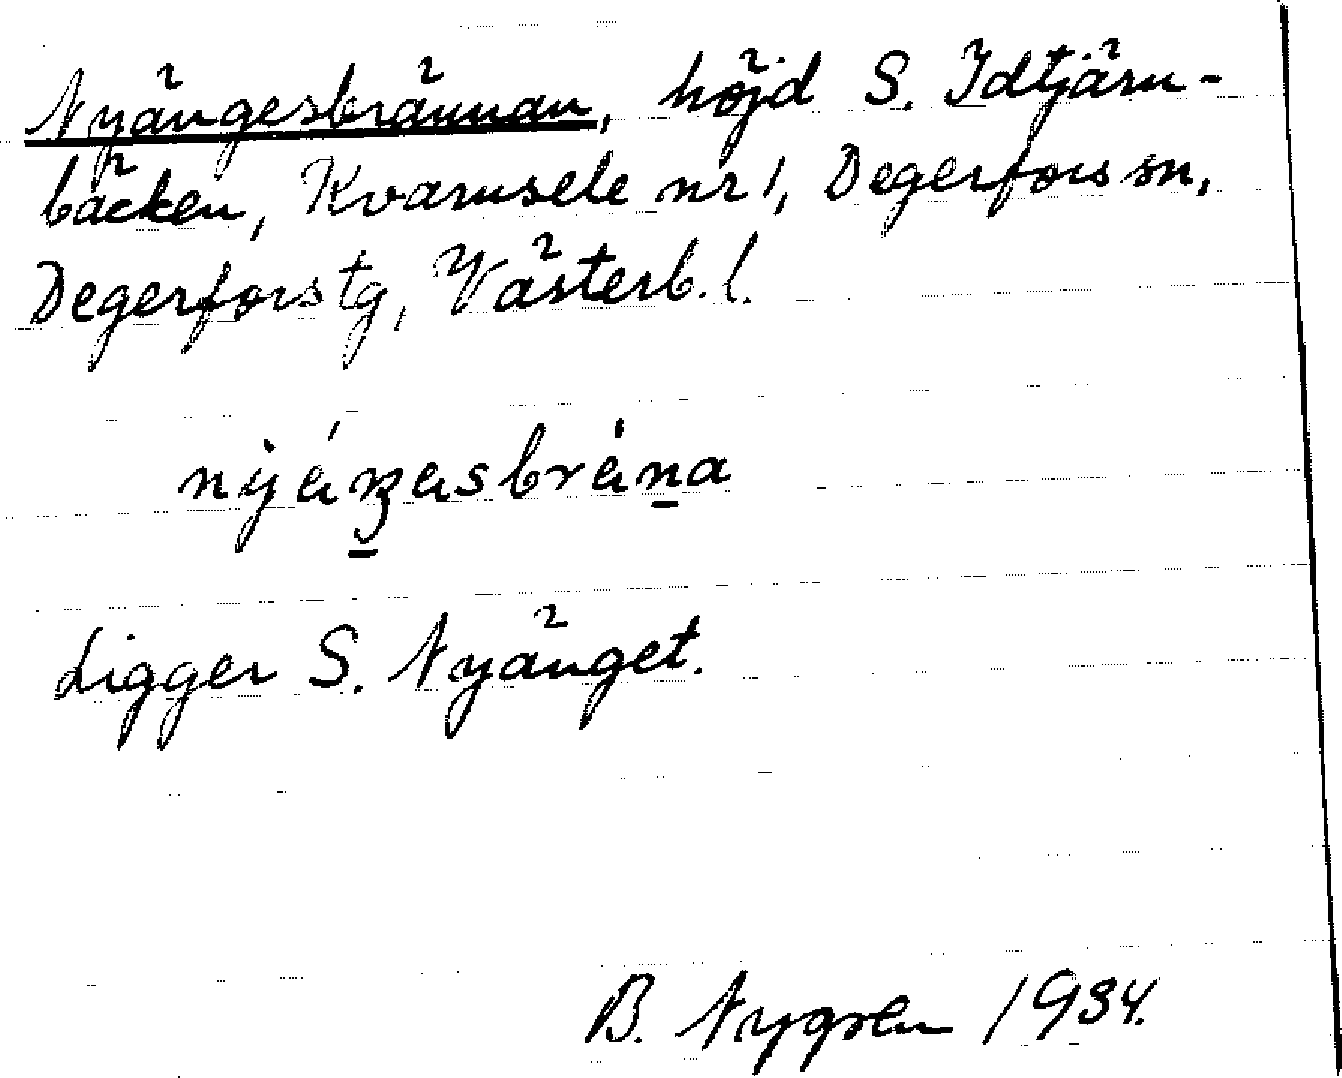 Nyängesbrännan, höjd S. Idtjärn-
bäcken, Kvarnsele nr 1, Degerfors sn,
Degerfors tg, Västerb. l.
Ligger S. Nyänget.
B. Nygren 1934.